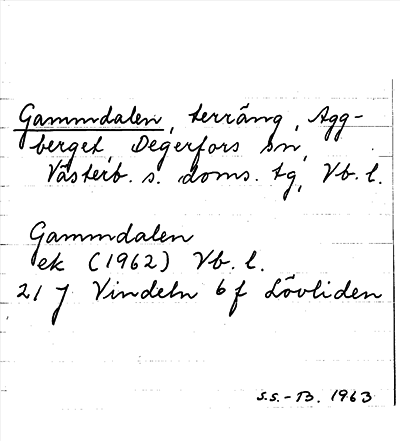 Gammdalen, terräng, Agg-
berget, Degerfors sn,
Västerb. s. doms. tg, Vb. l.
Gammdalen
ek (1962) Vb. l.
21 J Vindeln 6 f Lövliden
S.S.-B. 1963